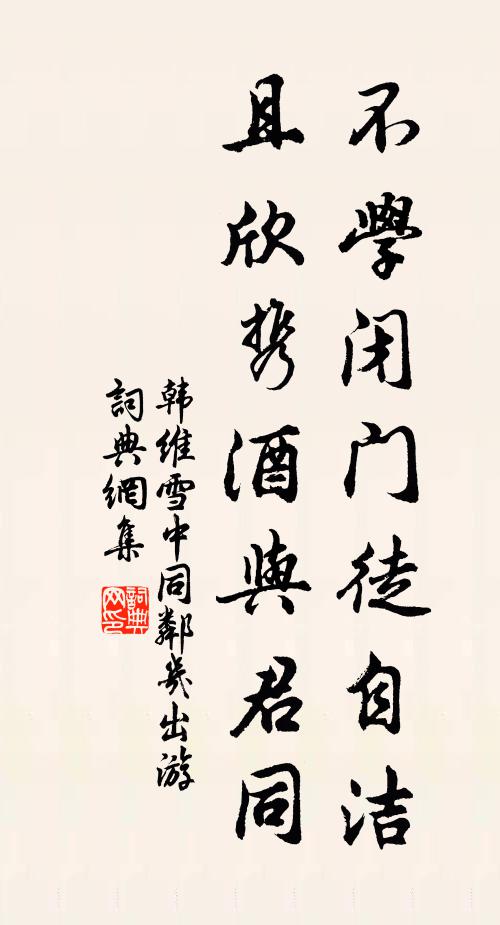 不學闭门徒自洁
且欣携酒與君同
韩维雪中同鄰幾出游
詞典網集
詞典
网印